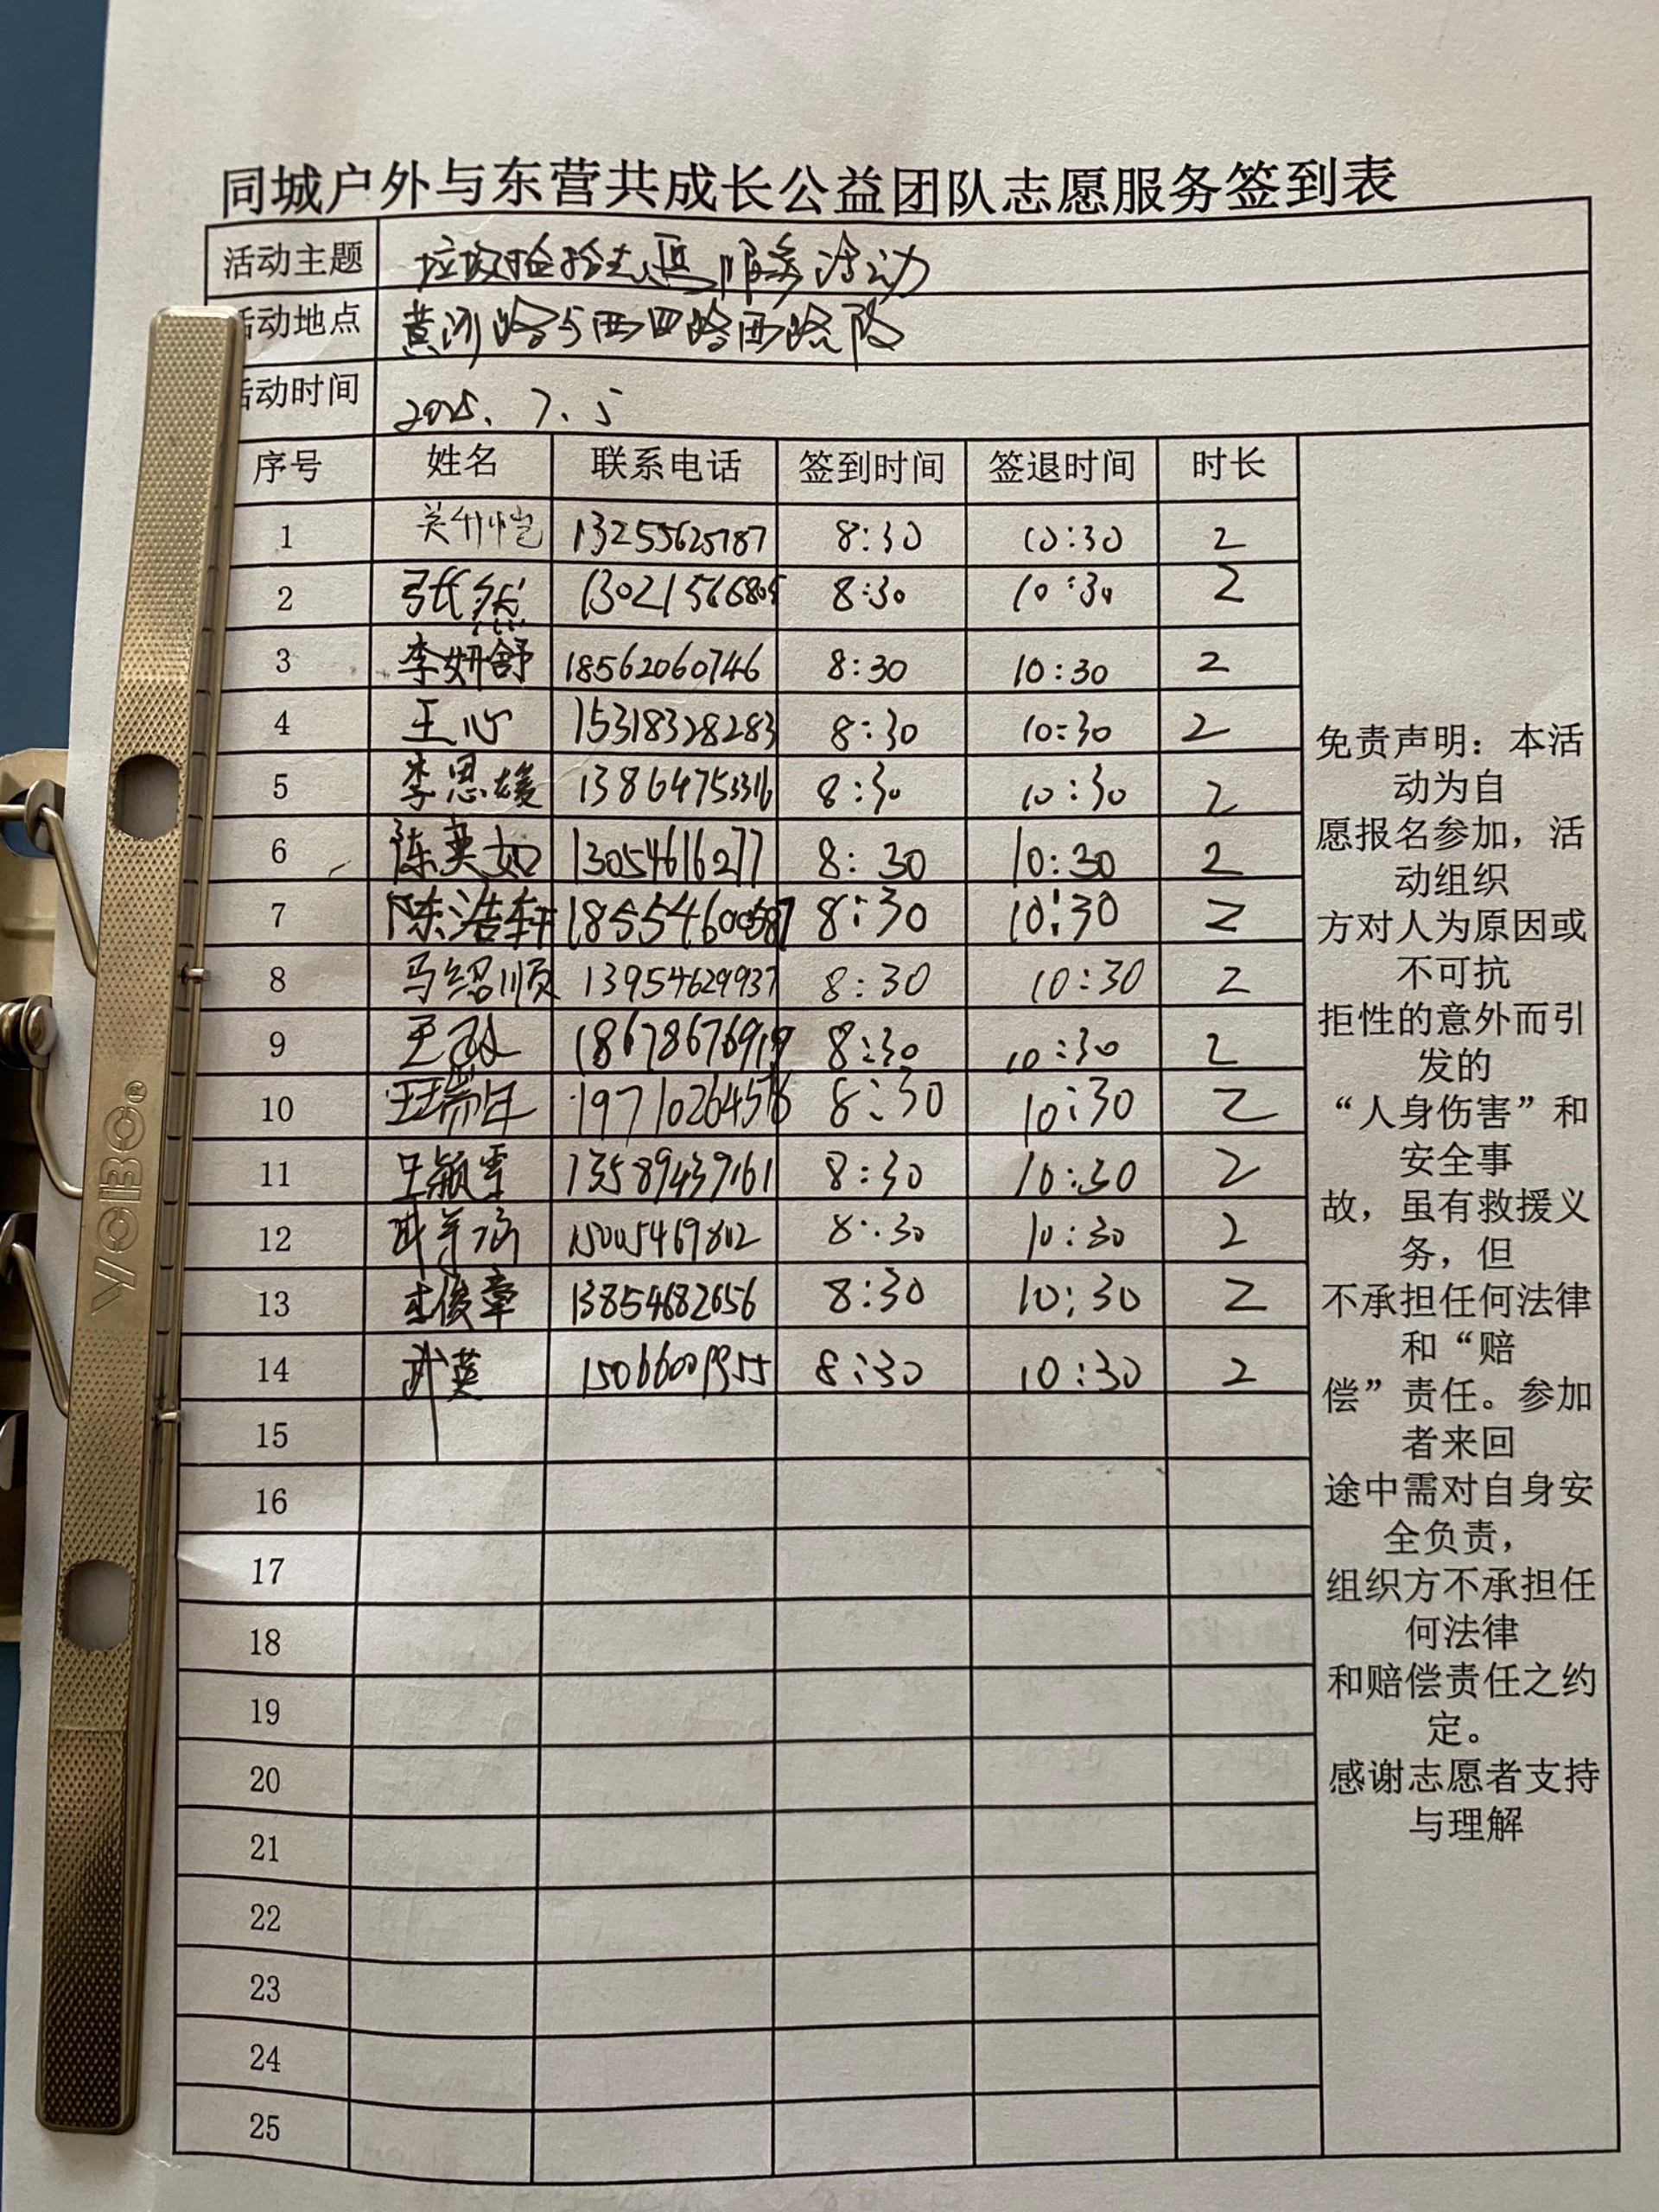 同城户外与东营共成长公益团队志愿服务签到表
活动主题 垃圾捡拾志愿服务活动
活动地点 黄河路与西四路西路段
活动时间 2025.7.5
序号 姓名 联系电话 签到时间 签退时间 时长
1 13255625787 8:30 10:30 2
2 张然 8:30 10:30 2
3 李妍舒 18562060746 8:30 10:30 2
4 王心 15318328283 8:30 10:30 2
5 李思媛 13864753316 8:30 10:30 2
6 陈奕如 13054616277 8:30 10:30 2
7 陈浩轩 18554600587 8:30 10:30 2
8 马绍顺 13954629937 8:30 10:30 2
9 8:30 10:30 2
10 19710264576 8:30 10:30 2
11 王颖雪 13589439161 8:30 10:30 2
12 15005469802 8:30 10:30 2
13 王俊章 13854682656 8:30 10:30 2
14 武英 8:30 10:30 2
15
16
17
18
19
20
21
22
23
24
25
免责声明：本活
动为自
愿报名参加，活
动组织
方对人为原因或
不可抗
拒性的意外而引
发的
“人身伤害”和
安全事
故，虽有救援义
务，但
不承担任何法律
和“赔
偿”责任。参加
者来回
途中需对自身安
全负责，
组织方不承担任
何法律
和赔偿责任之约
定。
感谢志愿者支持
与理解